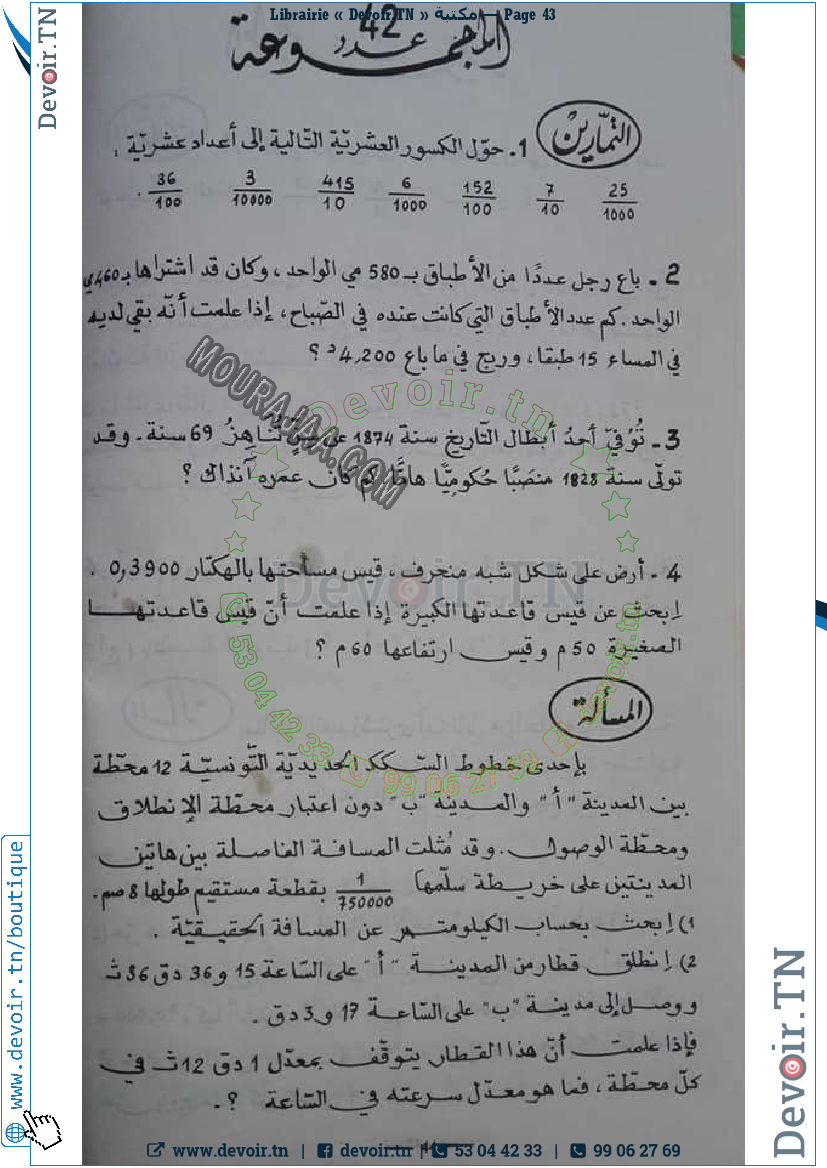 Librairie « Devoir.TN » مكتبة Page 43
Devoir.TN
المجموعة عدد 42
التمارين
1. حوّل الكسور العشريّة التّالية إلى أعداد عشريّة .
25/1000 7/10 152/100 6/1000 415/10 3/10000 36/100 .
2 - باع رجل عددًا من الأطباق بـ 580 مي الواحد، وكان قد اشتراها بـ 460 مي
الواحد. كم عدد الأطباق التي كانت عنده في الصّباح، إذا علمت أنّه بقي لديه
في المساء 15 طبقا، وربح في ما باع 4,200 د ؟
3 - تُوُفّيَ أحدُ أبطال التّاريخ سنة 1874 على سِنٍّ تُنَاهِزُ 69 سنة. وقد
تولّى سنة 1828 منصَبًا حُكوميًّا هامًّا كم كان عمره آنذاك ؟
4 - أرض على شكل شبه منحرف، قيس مساحتها بالهكتار 0,3900 .
إبحث عن قيس قاعدتها الكبيرة إذا علمت أنّ قيس قاعدتها
الصغيرة 50 م وقيس ارتفاعها 60 م ؟
المسألة
بإحدى خطوط السّكك الحديديّة التّونسيّة 12 محطّة
بين المدينة "أ" والمدينة "ب" دون اعتبار محطّة الإنطلاق
ومحطّة الوصول. وقد مُثلت المسافة الفاصلة بين هاتين
المدينتين على خريطة سلّمها 1/750000 بقطعة مستقيم طولها 8 صم.
1) إبحث بحساب الكيلومتر عن المسافة الحقيقيّة .
2) إنطلق قطار من المدينة "أ" على السّاعة 15 و 36 دق 36 ث
ووصل إلى مدينة "ب" على السّاعة 17 و 3 دق .
فإذا علمت أنّ هذا القطار يتوقّف بمعدّل 1 دق 12 ث في
كلّ محطّة، فما هو معدّل سرعته في السّاعة ؟ .
MOURAJAA.COM
Devoir.tn
Devoir.TN
53 04 42 33
99 06 27 69
Devoir.tn
www.devoir.tn/boutique
Devoir.TN
www.devoir.tn | devoir.tn | 53 04 42 33 | 99 06 27 69